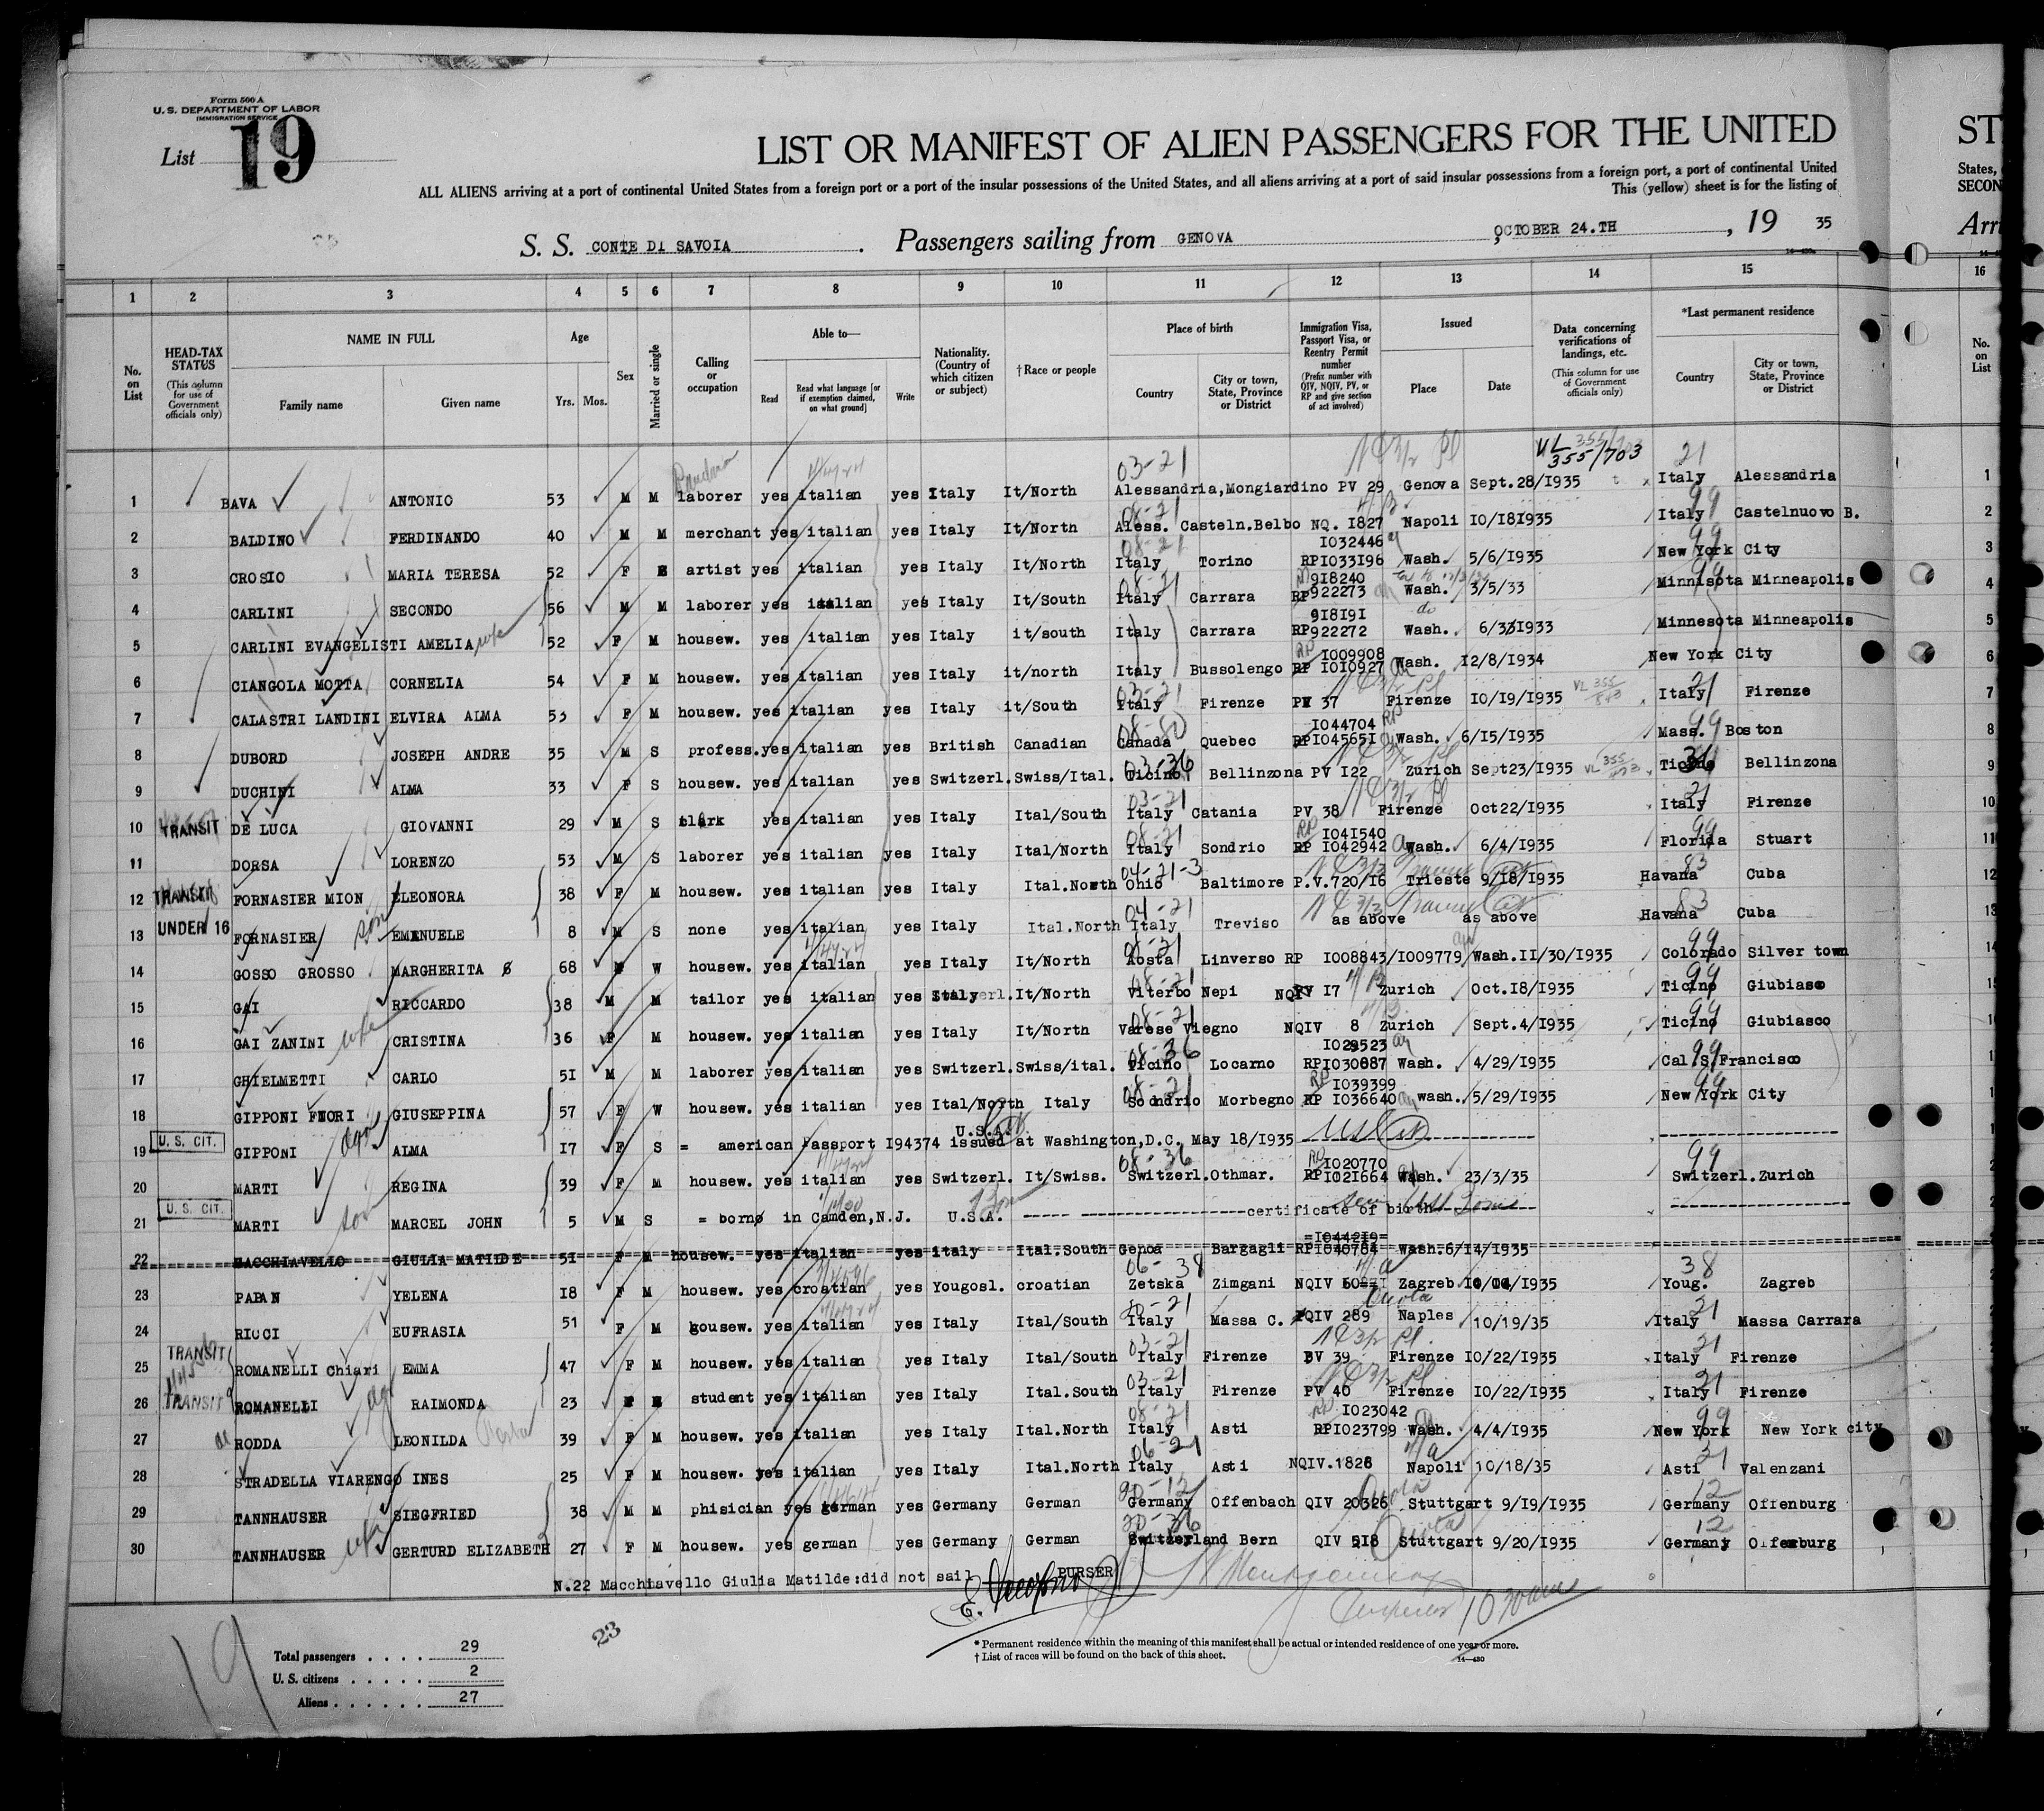 Form 500 A
U. S. DEPARTMENT OF LABOR
IMMIGRATION SERVICE
List 19
LIST OR MANIFEST OF ALIEN PASSENGERS FOR THE UNITED
ALL ALIENS arriving at a port of continental United States from a foreign port or a port of the insular possessions of the United States, and all aliens arriving at a port of said insular possessions from a foreign port, a port of continental United
This (yellow) sheet is for the listing of
S. S. CONTE DI SAVOIA . Passengers sailing from GENOVA , OCTOBER 24.TH , 19 35
ST
States,
SECON
Arri
1 2 3 4 5 6 7 8 9 10 11 12 13 14 15 16
No. on List
HEAD-TAX STATUS (This column for use of Government officials only)
NAME IN FULL Family name Given name
Age Yrs. Mos.
Sex
Married or single
Calling or occupation
Able to— Read Read what language [or if exemption claimed, on what ground] Write
Nationality. (Country of which citizen or subject)
†Race or people
Place of birth Country City or town, State, Province or District
Immigration Visa, Passport Visa, or Reentry Permit number (Prefix number with QIV, NQIV, PV, or RP and give section of act involved)
Issued Place Date
Data concerning verifications of landings, etc. (This column for use of Government officials only)
*Last permanent residence Country City or town, State, Province or District
No. on List
VL 355/703
03-21 21
1 BAVA ANTONIO 53 M M laborer yes italian yes Italy It/North Alessandria,Mongiardino PV 29 Genova Sept.28/I935 Italy Alessandria 1
08-21 99
2 BALDINO FERDINANDO 40 M M merchant yes italian yes Italy It/North Aless. Casteln.Belbo NQ. I827 Napoli I0/I8I935 Italy Castelnuovo B. 2
08-21 I032446 99
3 CROSIO MARIA TERESA 52 F artist yes italian yes Italy It/North Italy Torino RPI033I96 Wash. 5/6/I935 New York City 3
08-21 9I8240 99
4 CARLINI SECONDO 56 M M laborer yes italian yes Italy It/South Italy Carrara RP922273 Wash. 3/5/33 Minnisota Minneapolis 4
9I8I9I do
5 CARLINI EVANGELISTI AMELIA wife 52 F M housew. yes italian yes Italy it/south Italy Carrara RP922272 Wash. 6/33I933 Minnesota Minneapolis 5
RP I009908
6 CIANGOLA MOTTA CORNELIA 54 F M housew. yes italian yes Italy it/north Italy Bussolengo RP I0I0927 Wash. I2/8/I934 New York City 6
03-21 VL 355/843 21
7 CALASTRI LANDINI ELVIRA ALMA 53 F M housew. yes italian yes Italy it/South Italy Firenze PV 37 Firenze I0/I9/I935 Italy Firenze 7
08-80 I044704 RP 99
8 DUBORD JOSEPH ANDRE 35 M S profess. yes italian yes British Canadian Canada Quebec RPI04565I Wash. 6/I5/I935 Mass. Boston 8
03-36 VL 355 36
9 DUCHINI ALMA 33 F S housew. yes italian yes Switzerl. Swiss/Ital. Ticino Bellinzona PV I22 Zurich Sept23/I935 Ticino Bellinzona 9
03-21 21
10 TRANSIT DE LUCA GIOVANNI 29 M S clark yes italian yes Italy Ital/South Italy Catania PV 38 Firenze Oct22/I935 Italy Firenze 10
08-21 RP I04I540 99
11 DORSA LORENZO 53 M S laborer yes italian yes Italy Ital/North Italy Sondrio RP I042942 Wash. 6/4/I935 Florida Stuart 11
04-21-3 83
12 TRANSIT FORNASIER MION ELEONORA 38 F M housew. yes italian yes Italy Ital.North Ohio Baltimore P.V.720/I6 Trieste 9/I8/I935 Havana Cuba 12
04-21 83
13 UNDER 16 FORNASIER son EMANUELE 8 M S none yes italian yes Italy Ital.North Italy Treviso as above as above Havana Cuba 13
08-21 99
14 GOSSO GROSSO MARGHERITA 68 W housew. yes italian yes Italy It/North Aosta Linverso RP I008843/I009779/Wash.II/30/I935 Colorado Silver town 14
08-21 99
15 GAI RICCARDO 38 M M tailor yes italian yes Italy It/North Viterbo Nepi NQIV I7 Zurich Oct.I8/I935 Ticino Giubiasco
08-21 99
16 GAI ZANINI wife CRISTINA 36 F M housew. yes italian yes Italy It/North Varese Viegno NQIV 8 Zurich Sept.4/I935 Ticino Giubiasco
08-36 I029523 99
17 GHIELMETTI CARLO 5I M M laborer yes italian yes Switzerl. Swiss/ital. Ticino Locarno RPI030087 Wash. 4/29/I935 Cal S.Francisco
08-21 RP I039399 99
18 GIPPONI FNORI GIUSEPPINA 57 F W housew. yes italian yes Ital/North Italy Sondrio Morbegno RP I036640 wash. 5/29/I935 New York City
U.S.A.
19 U. S. CIT. GIPPONI dau ALMA I7 F S = american Passport I94374 issued at Washington,D.C. May I8/I935
08-36 RP I020770 99
20 MARTI REGINA 39 F M housew. yes italian yes Switzerl. It/Swiss. Switzerl.Othmar. RPI02I664 Wash. 23/3/35 Switzerl.Zurich
21 U. S. CIT. MARTI son MARCEL JOHN 5 M S = born in Camden,N.J. U.S.A. certificate of birth
=I0442I9=
22 MACCHIAVELLO GIULIA MATILDE 5I F M housew. yes italian yes italy Ital.South Genoa Bargagli RPI040784 Wash.6/I4/I935
06-38 38
23 PAPAN YELENA I8 F M housew. yes croatian yes Yougosl. croatian Zetska Zimgani NQIV Zagreb I935 Youg. Zagreb
20-21 Quota 21
24 RICCI EUFRASIA 51 F M housew. yes italian yes Italy Ital/South Italy Massa C. QIV 289 Naples 10/19/35 Italy Massa Carrara
03-21 21
25 TRANSIT ROMANELLI Chiari EMMA 47 F M housew. yes italian yes Italy Ital/South Italy Firenze PV 39 Firenze I0/22/I935 Italy Firenze
03-21 21
26 TRANSIT ROMANELLI RAIMONDA 23 F student yes italian yes Italy Ital.South Italy Firenze PV 40 Firenze I0/22/I935 Italy Firenze
08-21 RP I023042 99
27 RODDA LEONILDA 39 F M housew. yes italian yes Italy Ital.North Italy Asti RPI023799 Wash. 4/4/I935 New York New York city
06-21 21
28 STRADELLA VIARENGO INES 25 F M housew. yes italian yes Italy Ital.North Italy Asti NQIV.I826 Napoli 10/18/35 Asti Valenzani
20-12 Quota 12
29 TANNHAUSER SIEGFRIED 38 M M phisician yes german yes Germany German Germany Offenbach QIV 20326 Stuttgart 9/I9/I935 Germany Offenburg
20-36 Quota 12
30 TANNHAUSER wife GERTURD ELIZABETH 27 F M housew. yes german yes Germany German Switzerland Bern QIV 5I8 Stuttgart 9/20/I935 Germany Offenburg
N.22 Macchiavello Giulia Matilde:did not sail PURSER
Montgomery
Inspector 10 30am
19
23
Total passengers . . . . 29
U. S. citizens . . . . . 2
Aliens . . . . . . 27
* Permanent residence within the meaning of this manifest shall be actual or intended residence of one year or more.
† List of races will be found on the back of this sheet.
14—430